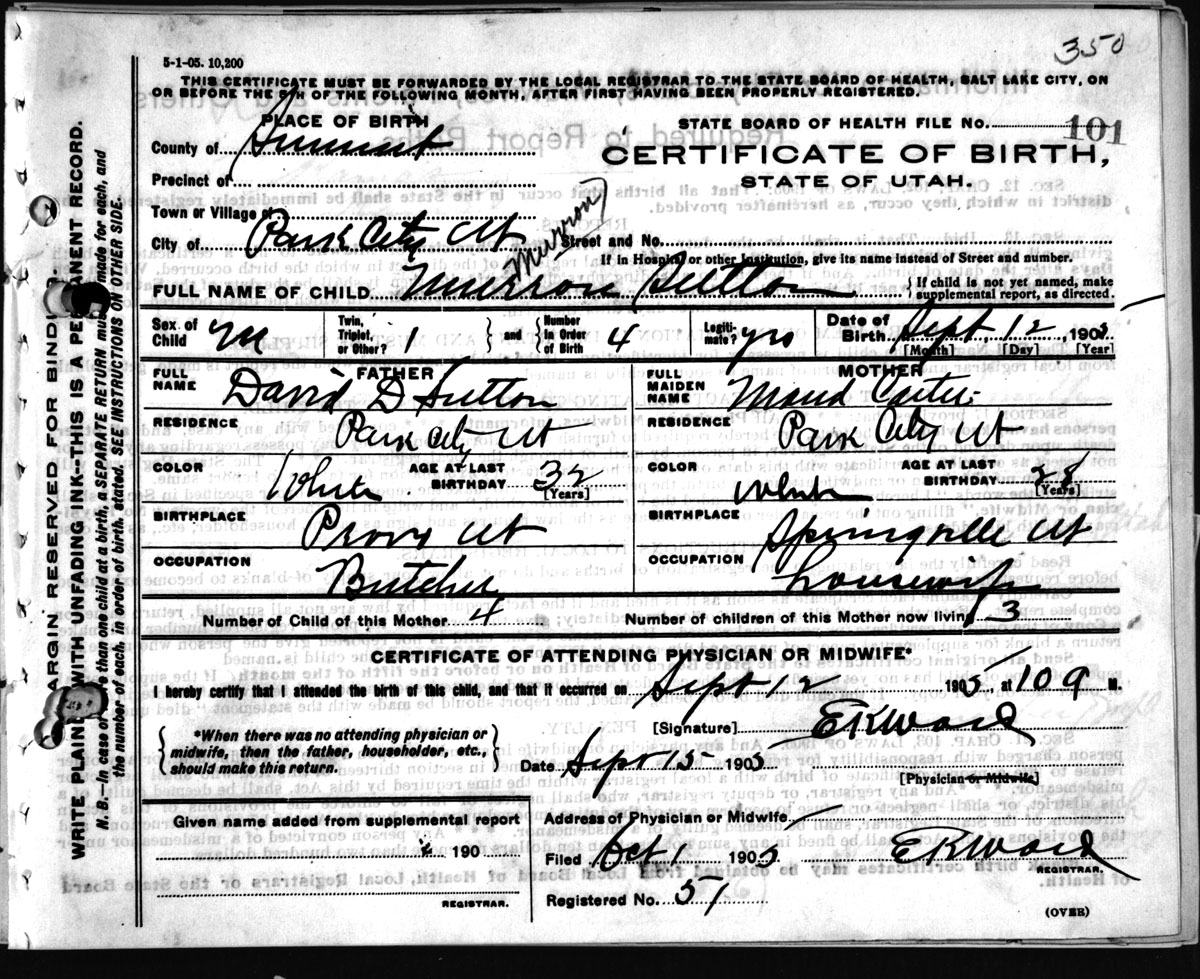 350
5-1-05. 10,200
THIS CERTIFICATE MUST BE FORWARDED BY THE LOCAL REGISTRAR TO THE STATE BOARD OF HEALTH, SALT LAKE CITY, ON
OR BEFORE THE 5TH OF THE FOLLOWING MONTH, AFTER FIRST HAVING BEEN PROPERLY REGISTERED.
PLACE OF BIRTH
STATE BOARD OF HEALTH FILE No. 101
County of Summit
CERTIFICATE OF BIRTH,
Precinct of
STATE OF UTAH.
Town or Village of
City of Park City Ut Street and No.
If in Hospital or other Institution, give its name instead of Street and number.
FULL NAME OF CHILD Murron Sutton
Murron
If child is not yet named, make
supplemental report, as directed.
Sex of Child M Twin, Triplet, or Other? 1 and Number In Order of Birth 4 Legiti- mate? yes Date of Birth Sept. 12, 1905
[Month] [Day] [Year]
FATHER
FULL NAME David D Sutton
RESIDENCE Park City Ut
COLOR White AGE AT LAST BIRTHDAY 32
[Years]
BIRTHPLACE Provo Ut
OCCUPATION Butcher
MOTHER
FULL MAIDEN NAME Maud Carter
RESIDENCE Park City Ut
COLOR White AGE AT LAST BIRTHDAY 28
[Years]
BIRTHPLACE Springville Ut
OCCUPATION housewife
Number of Child of this Mother 4 Number of children of this Mother now living 3
CERTIFICATE OF ATTENDING PHYSICIAN OR MIDWIFE*
I hereby certify that I attended the birth of this child, and that it occurred on Sept 12 1905, at 10 9 M.
*When there was no attending physician or
midwife, then the father, householder, etc.,
should make this return.
[Signature] EKWard
Date Sept 15 1905
[Physician or Midwife]
Given name added from supplemental report
190
REGISTRAR.
Address of Physician or Midwife
Filed Oct 1 1905 EKWard
REGISTRAR.
Registered No. 51
(OVER)
MARGIN RESERVED FOR BINDING.
WRITE PLAINLY WITH UNFADING INK--THIS IS A PERMANENT RECORD.
N. B.—In case of more than one child at a birth, a SEPARATE RETURN must be made for each, and
the number of each, in order of birth, stated. SEE INSTRUCTIONS ON OTHER SIDE.